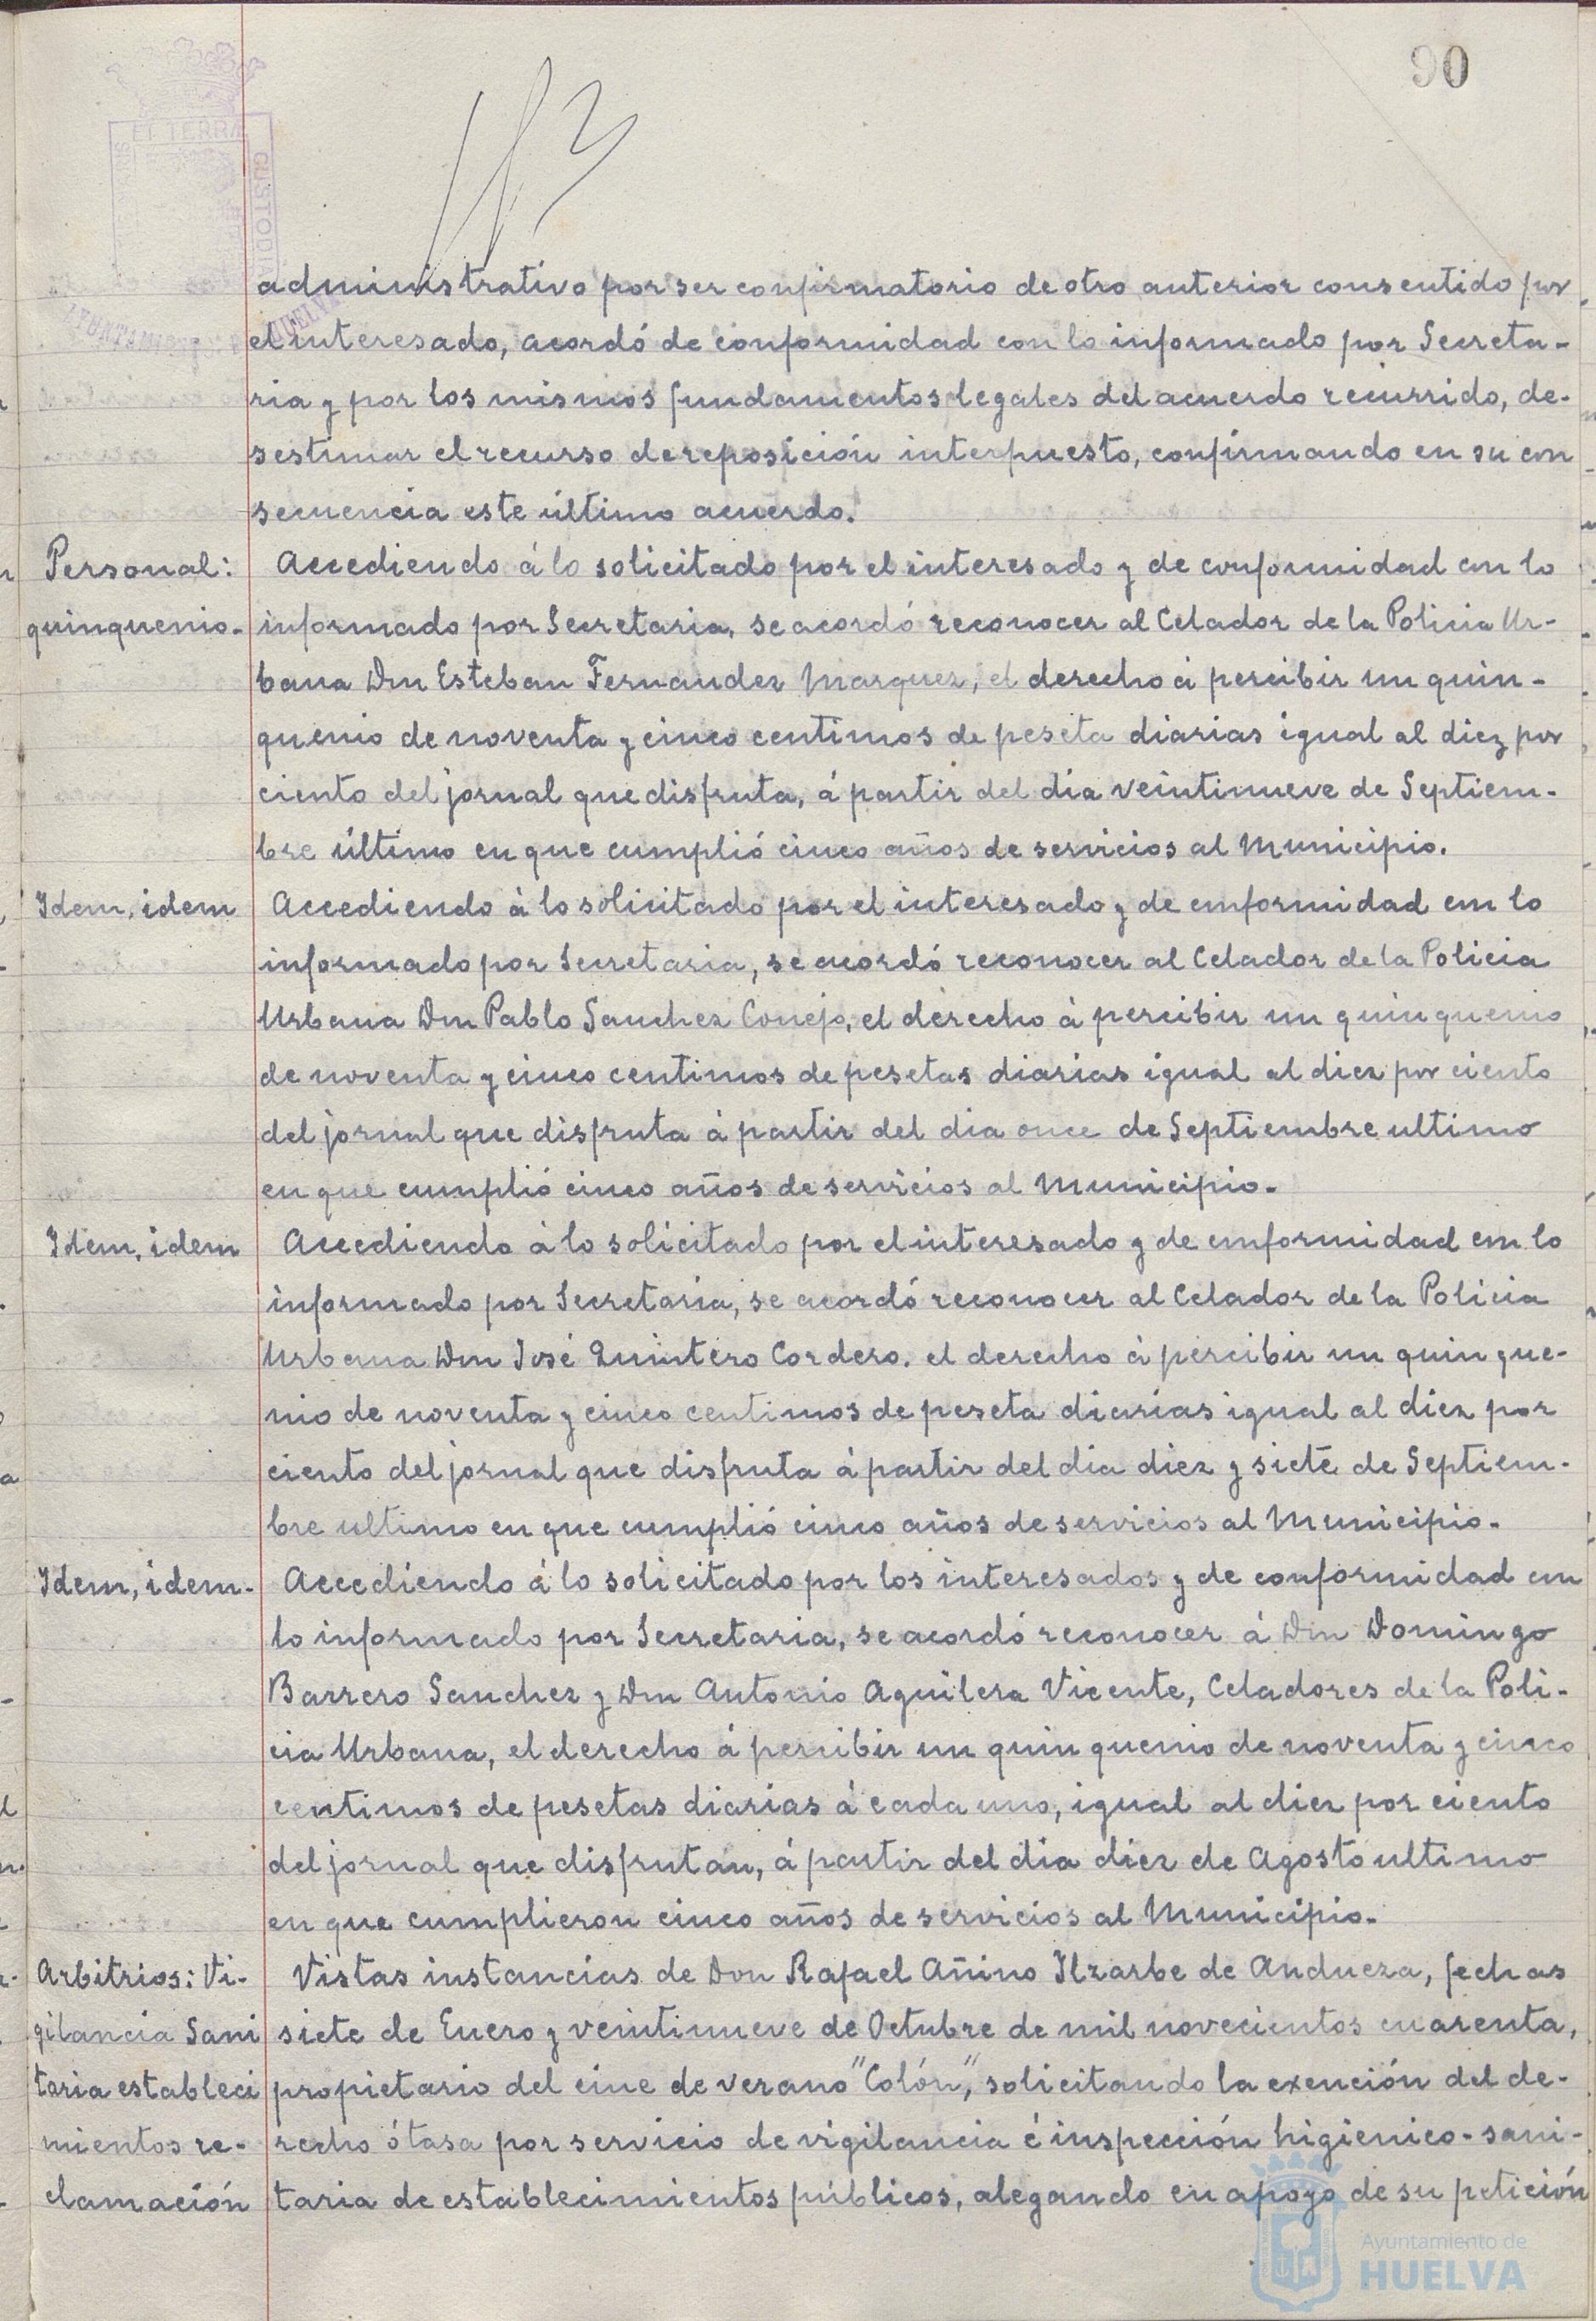 90
EL TERRA
CUSTODI
administrativo por ser confirmatorio de otro anterior consentido por
el interesado, acordó de conformidad con lo informado por Secreta-
ria y por los mismos fundamentos legales del acuerdo recurrido, de-
sestimar el recurso de reposición interpuesto, confirmando en su con
secuencia este último acuerdo.
Personal:
quinquenio.
Accediendo á lo solicitado por el interesado y de conformidad con lo
informado por Secretaria, se acordó reconocer al Celador de la Policia Ur-
bana Don Esteban Fernandez Marquez, el derecho á percibir un quin-
quenio de noventa y cinco centimos de peseta diarias igual al diez por
ciento del jornal que disfruta, á partir del dia veintinueve de Septiem-
bre último en que cumplió cinco años de servicios al Municipio.
Idem, idem
Accediendo á lo solicitado por el interesado y de conformidad con lo
informado por Secretaria, se acordó reconocer al Celador de la Policia
Urbana Don Pablo Sanchez Conejo, el derecho á percibir un quinquenio
de noventa y cinco centimos de pesetas diarias igual al diez por ciento
del jornal que disfruta á partir del dia once de Septiembre ultimo
en que cumplió cinco años de servicios al Municipio.
Idem, idem
Accediendo á lo solicitado por el interesado y de conformidad con lo
informado por Secretaria, se acordó reconocer al Celador de la Policia
Urbana Don José Quintero Cordero. el derecho á percibir un quinque-
nio de noventa y cinco centimos de peseta diarias igual al diez por
ciento del jornal que disfruta á partir del dia diez y siete de Septiem-
bre ultimo en que cumplió cinco años de servicios al Municipio.
Idem, idem.
Accediendo á lo solicitado por los interesados y de conformidad con
lo informado por Secretaria, se acordó reconocer á Don Domingo
Barrero Sanchez y Don Antonio Aguilera Vicente, Celadores de la Poli-
cia Urbana, el derecho á percibir un quinquenio de noventa y cinco
centimos de pesetas diarias á cada uno, igual al diez por ciento
del jornal que disfrutan, á partir del dia diez de Agosto ultimo
en que cumplieron cinco años de servicios al Municipio.
Arbitrios: Vi-
gilancia Sani
taria estableci
mientos re-
clamación
Vistas instancias de Don Rafael Añino Ilzarbe de Andueza, fechas
siete de Enero y veintinueve de Octubre de mil novecientos cuarenta,
propietario del cine de verano "Colón", solicitando la exención del de-
recho ó tasa por servicio de vigilancia é inspección higienico-sani-
taria de establecimientos públicos, alegando en apoyo de su petición
Ayuntamiento de
HUELVA